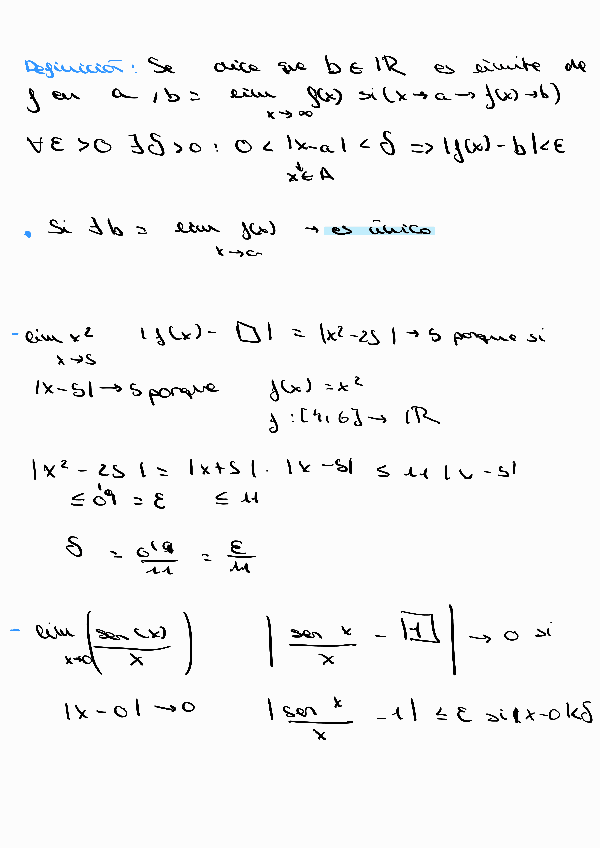 Definición: Se dice que b ∈ ℝ es límite de
f en a, b = lim x→∞ f(x) si (x → a → f(x) → b)
∀ ε > 0 ∃ δ > 0 : 0 < |x-a| < δ => |f(x) - b| < ε
x ∈ A
• Si ∃ b = lim x→a f(x) → es único
- lim x→5 x² |f(x) - □| = |x²-25| → 5 porque si
|x-5| → 5 porque f(x) = x²
f : [4,6] → ℝ
|x² - 25| = |x+5| · |x-5| ≤ 11 |x-5|
≤ 0'9 = ε ≤ 11
δ = 0'9/11 = ε/11
- lim x→0 (sen(x)/x) |sen x/x - 1| → 0 si
|x-0| → 0 |sen x/x - 1| ≤ ε si |x-0| < δ